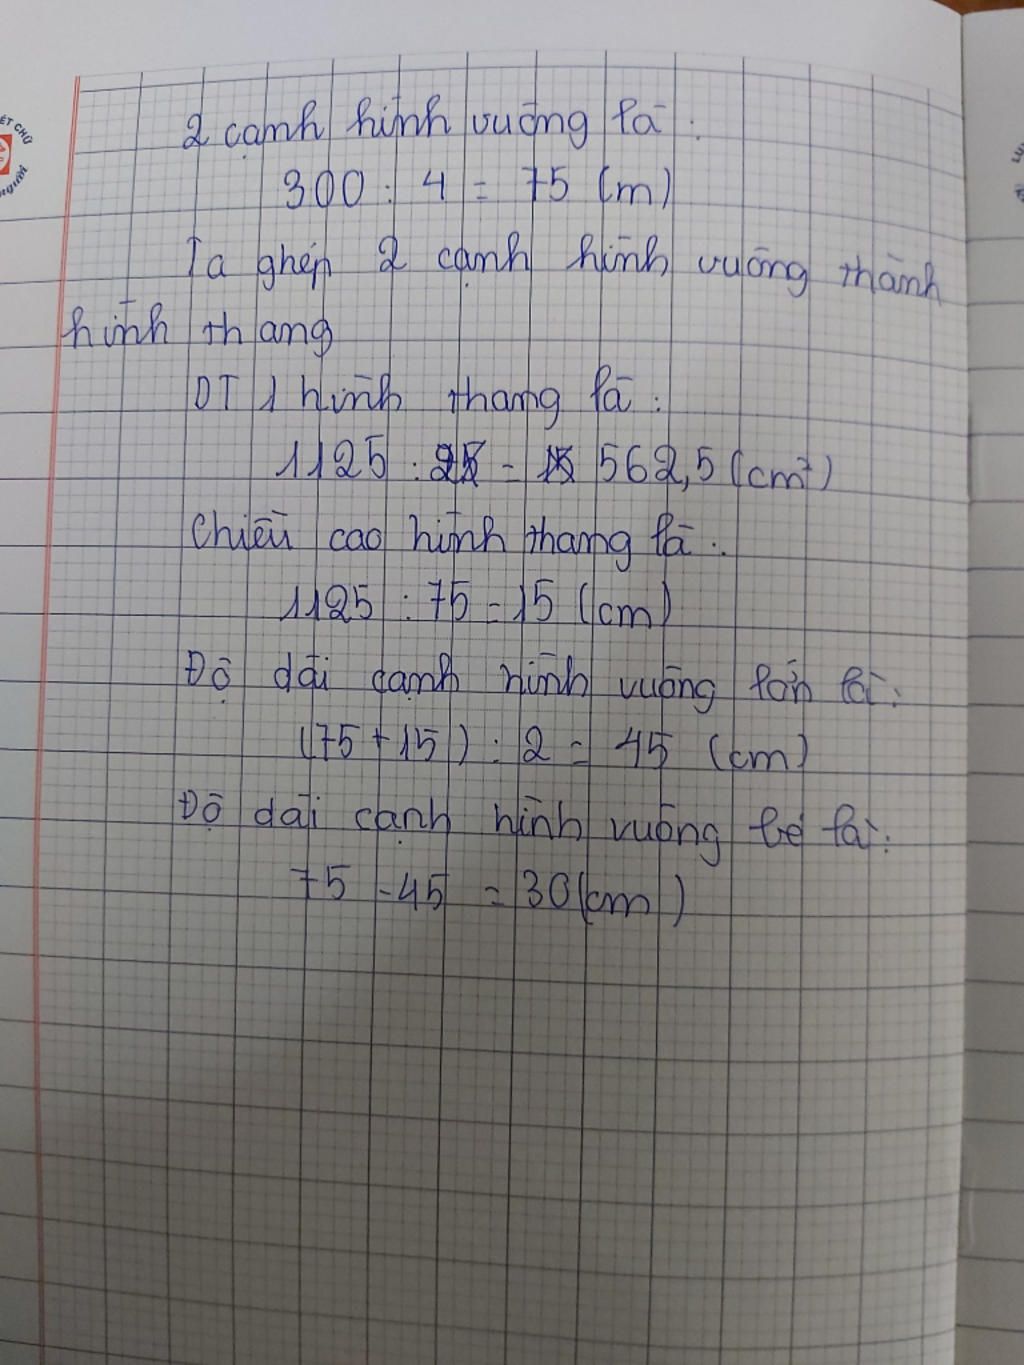 ẾT CHỮ
người
2 cạnh hình vuông là:
300 : 4 = 75 (m)
Ta ghép 2 cạnh hình vuông thành
hình thang
DT 1 hình thang là:
1125 : 2 = 562,5 (cm²)
Chiều cao hình thang là:
1125 : 75 = 15 (cm)
Độ dài cạnh hình vuông lớn là:
(75 + 15) : 2 = 45 (cm)
Độ dài cạnh hình vuông bé là:
75 - 45 = 30 (cm)